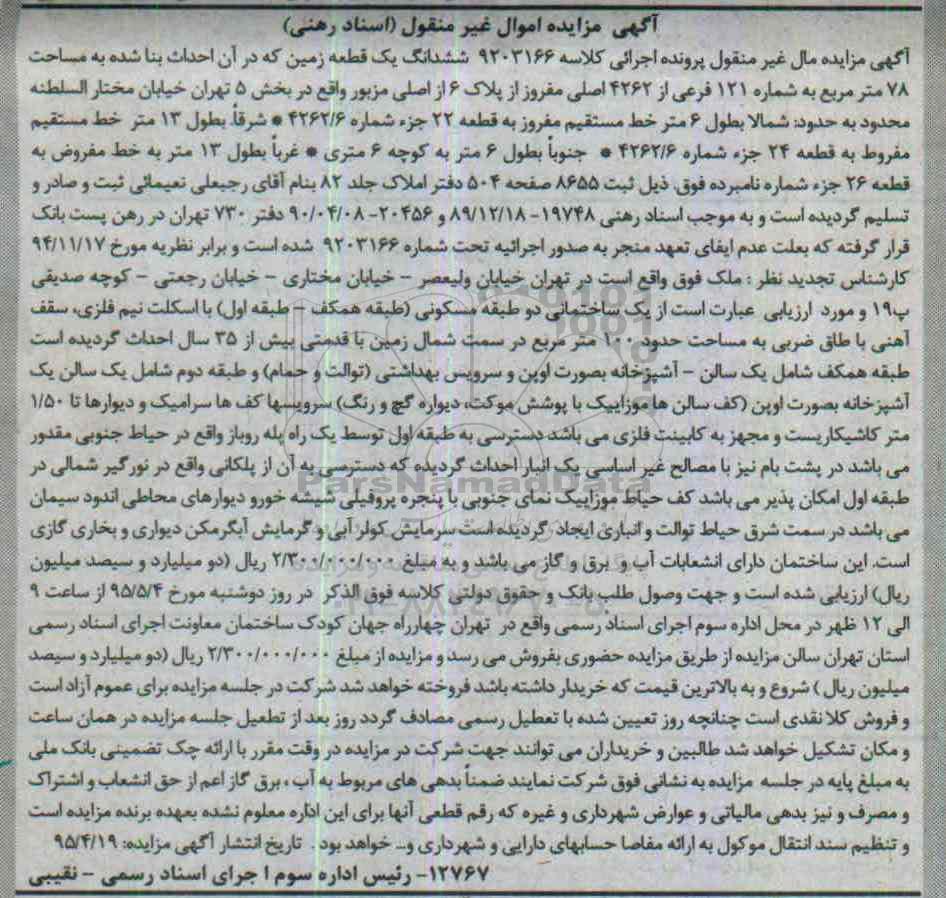 آگهی مزایده اموال غیر منقول (اسناد رهنی)
آگهی مزایده مال غیر منقول پرونده اجرائی کلاسه ۹۲۰۳۱۶۶ ششدانگ یک قطعه زمین که در آن احداث بنا شده به مساحت
۷۸ متر مربع به شماره ۱۲۱ فرعی از ۴۲۶۲ اصلی مفروز از پلاک ۶ از اصلی مزبور واقع در بخش ۵ تهران خیابان مختار السلطنه
محدود به حدود: شمالا بطول ۶ متر خط مستقیم مفروز به قطعه ۲۲ جزء شماره ۴۲۶۲/۶ * شرقاً بطول ۱۳ متر خط مستقیم
مفروط به قطعه ۲۴ جزء شماره ۴۲۶۲/۶ * جنوباً بطول ۶ متر به کوچه ۶ متری * غرباً بطول ۱۳ متر به خط مفروض به
قطعه ۲۶ جزء شماره نامبرده فوق، ذیل ثبت ۸۶۵۵ صفحه ۵۰۴ دفتر املاک جلد ۸۲ بنام آقای رجبعلی نعیمائی ثبت و صادر و
تسلیم گردیده است و به موجب اسناد رهنی ۱۹۷۴۸- ۸۹/۱۲/۱۸ و ۲۰۴۵۶- ۹۰/۰۴/۰۸ دفتر ۷۳۰ تهران در رهن پست بانک
قرار گرفته که بعلت عدم ایفای تعهد منجر به صدور اجرائیه تحت شماره ۹۲۰۳۱۶۶ شده است و برابر نظریه مورخ ۹۴/۱۱/۱۷
کارشناس تجدید نظر : ملک فوق واقع است در تهران خیابان ولیعصر - خیابان مختاری - خیابان رجعتی - کوچه صدیقی
پ۱۹ و مورد ارزیابی عبارت است از یک ساختمانی دو طبقه مسکونی (طبقه همکف - طبقه اول) با اسکلت نیم فلزی، سقف
آهنی با طاق ضربی به مساحت حدود ۱۰۰ متر مربع در سمت شمال زمین با قدمتی بیش از ۳۵ سال احداث گردیده است
طبقه همکف شامل یک سالن - آشپزخانه بصورت اوپن و سرویس بهداشتی (توالت و حمام) و طبقه دوم شامل یک سالن یک
آشپزخانه بصورت اوپن (کف سالن ها موزاییک با پوشش موکت، دیواره گچ و رنگ) سرویسها کف ها سرامیک و دیوارها تا ۱/۵۰
متر کاشیکاریست و مجهز به کابینت فلزی می باشد دسترسی به طبقه اول توسط یک راه پله روباز واقع در حیاط جنوبی مقدور
می باشد در پشت بام نیز با مصالح غیر اساسی یک انبار احداث گردیده که دسترسی به آن از پلکانی واقع در نورگیر شمالی در
طبقه اول امکان پذیر می باشد کف حیاط موزاییک نمای جنوبی با پنجره پروفیلی شیشه خورو دیوارهای محاطی اندود سیمان
می باشد در سمت شرق حیاط توالت و انباری ایجاد گردیده است سرمایش کولر آبی و گرمایش آبگرمکن دیواری و بخاری گازی
است. این ساختمان دارای انشعابات آب و برق و گاز می باشد و به مبلغ ۲/۳۰۰/۰۰۰/۰۰۰ ریال (دو میلیارد و سیصد میلیون
ریال) ارزیابی شده است و جهت وصول طلب بانک و حقوق دولتی کلاسه فوق الذکر در روز دوشنبه مورخ ۹۵/۵/۴ از ساعت ۹
الی ۱۲ ظهر در محل اداره سوم اجرای اسناد رسمی واقع در تهران چهارراه جهان کودک ساختمان معاونت اجرای اسناد رسمی
استان تهران سالن مزایده از طریق مزایده حضوری بفروش می رسد و مزایده از مبلغ ۲/۳۰۰/۰۰۰/۰۰۰ ریال (دو میلیارد و سیصد
میلیون ریال ) شروع و به بالاترین قیمت که خریدار داشته باشد فروخته خواهد شد شرکت در جلسه مزایده برای عموم آزاد است
و فروش کلا نقدی است چنانچه روز تعیین شده با تعطیل رسمی مصادف گردد روز بعد از تعطیل جلسه مزایده در همان ساعت
و مکان تشکیل خواهد شد طالبین و خریداران می توانند جهت شرکت در مزایده در وقت مقرر با ارائه چک تضمینی بانک ملی
به مبلغ پایه در جلسه مزایده به نشانی فوق شرکت نمایند ضمناً بدهی های مربوط به آب ، برق گاز اعم از حق انشعاب و اشتراک
و مصرف و نیز بدهی مالیاتی و عوارض شهرداری و غیره که رقم قطعی آنها برای این اداره معلوم نشده بعهده برنده مزایده است
و تنظیم سند انتقال موکول به ارائه مفاصا حسابهای دارایی و شهرداری و... خواهد بود . تاریخ انتشار آگهی مزایده: ۹۵/۴/۱۹
۱۲۷۶۷- رئیس اداره سوم اجرای اسناد رسمی - نقیبی
ParsNamadData